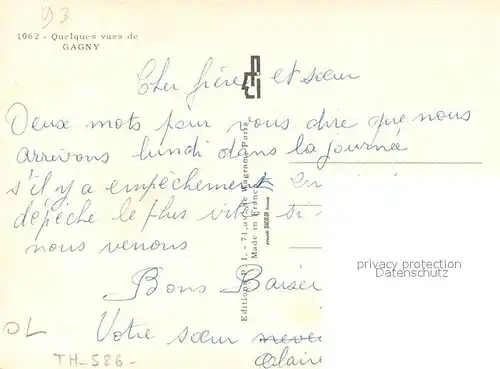 93
1062 - Quelques vues de
GAGNY
Cher frère et sœur
Deux mots pour vous dire que nous
arrivons lundi dans la journée
s'il y a empêchement
dépêche le plus vite si
nous venons
Bons Baiser
Votre sœur
Claire
OL
TH-586-
Editions P. I. - 71, av. de Wagram, Paris
Made in France
privacy protection
Datenschutz